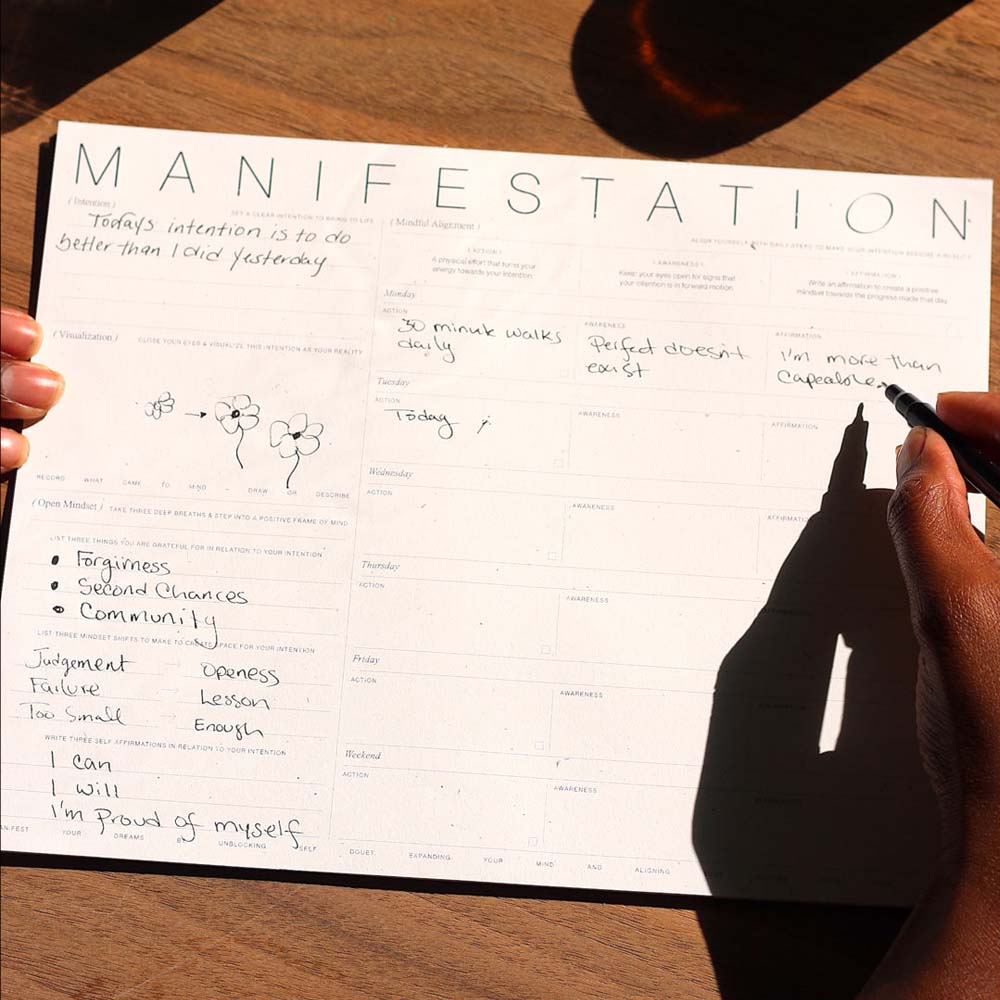 MANIFESTATION
( Intention )
SET A CLEAR INTENTION TO BRING TO LIFE
Todays intention is to do
better than I did yesterday
( Visualization )
CLOSE YOUR EYES & VISUALIZE THIS INTENTION AS YOUR REALITY
RECORD WHAT CAME TO MIND - DRAW OR DESCRIBE
( Open Mindset )
TAKE THREE DEEP BREATHS & STEP INTO A POSITIVE FRAME OF MIND
LIST THREE THINGS YOU ARE GRATEFUL FOR IN RELATION TO YOUR INTENTION
• Forgivness
• Second Chances
• Community
LIST THREE MINDSET SHIFTS TO MAKE TO CREATE SPACE FOR YOUR INTENTION
Judgement → Openess
Failure → Lesson
Too Small → Enough
WRITE THREE SELF AFFIRMATIONS IN RELATION TO YOUR INTENTION
I can
I will
I'm proud of myself
( Mindful Alignment )
ALIGN YOURSELF WITH DAILY STEPS TO MAKE YOUR INTENTION BECOME A REALITY
( ACTION )
A physical effort that turns your
energy towards your intention.
( AWARENESS )
Keep your eyes open for signs that
your intention is in forward motion.
( AFFIRMATION )
Write an affirmation to create a positive
mindset towards the progress made that day.
Monday
ACTION
30 minute walks
daily
AWARENESS
Perfect doesn't
exist
AFFIRMATION
I'm more than
capeable.
Tuesday
ACTION
Today
AWARENESS
AFFIRMATION
Wednesday
ACTION
AWARENESS
AFFIRMATION
Thursday
ACTION
AWARENESS
Friday
ACTION
AWARENESS
Weekend
ACTION
AWARENESS
MANIFEST YOUR DREAMS BY UNBLOCKING SELF DOUBT, EXPANDING YOUR MIND AND ALIGNING